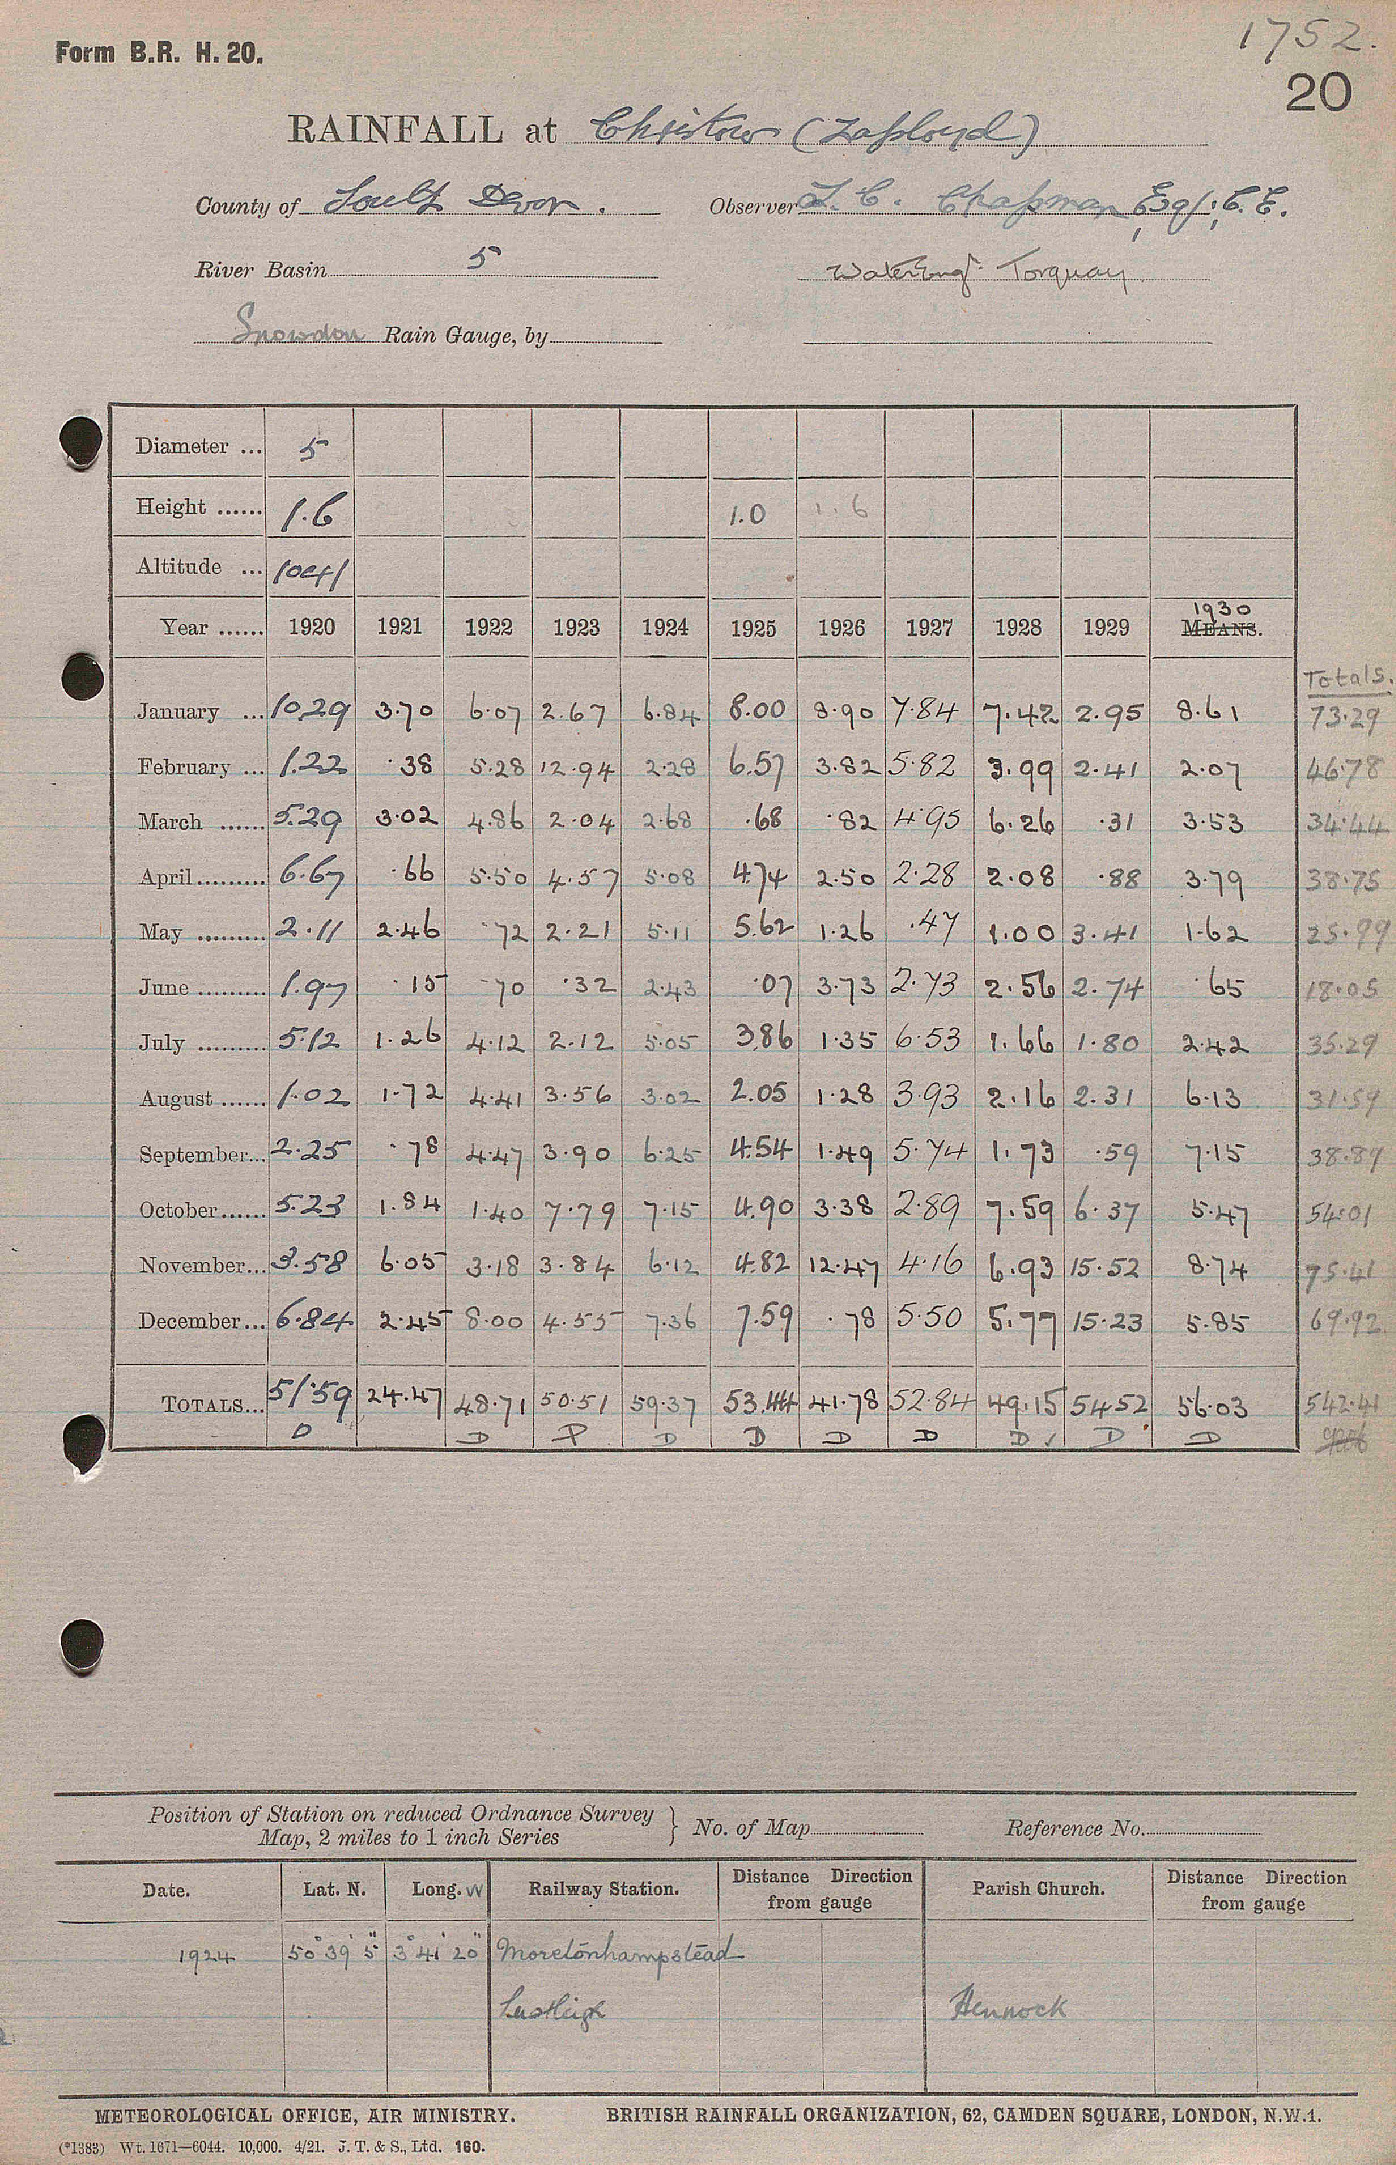 1752.
Form B.R. H. 20.
20
RAINFALL at Christow (Laployd)
County of South Devon. Observer S. C. Chapman, Esq., C.E.
River Basin 5 Torquay
Snowdon Rain Gauge, by
Diameter ... 5
Height ...... 1.6 1.0 1.6
Altitude ... 1041
Year ...... 1920 1921 1922 1923 1924 1925 1926 1927 1928 1929 1930 MEANS.
Totals.
January ... 10.29 3.70 6.07 2.67 6.84 8.00 8.90 7.84 7.42 2.95 8.61 73.29
February ... 1.22 .38 5.28 12.94 2.28 6.57 3.82 5.82 3.99 2.41 2.07 46.78
March ...... 5.29 3.02 4.86 2.04 2.68 .68 .82 4.95 6.26 .31 3.53 34.44
April ......... 6.67 .66 5.50 4.57 5.08 4.74 2.50 2.28 2.08 .88 3.79 38.75
May ......... 2.11 2.46 .72 2.21 5.11 5.62 1.26 .47 1.00 3.41 1.62 25.99
June ......... 1.97 .15 .70 .32 2.43 .07 3.73 2.73 2.56 2.74 .65 18.05
July ......... 5.12 1.26 4.12 2.12 5.05 3.86 1.35 6.53 1.66 1.80 2.42 35.29
August ...... 1.02 1.72 4.41 3.56 3.02 2.05 1.28 3.93 2.16 2.31 6.13 31.59
September... 2.25 .78 4.47 3.90 6.25 4.54 1.49 5.74 1.73 .59 7.15 38.89
October ...... 5.23 1.84 1.40 7.79 7.15 4.90 3.38 2.89 7.59 6.37 5.47 54.01
November... 3.58 6.05 3.18 3.84 6.12 4.82 12.47 4.16 6.93 15.52 8.74 75.41
December ... 6.84 2.45 8.00 4.55 7.36 7.59 .78 5.50 5.77 15.23 5.85 69.92
TOTALS... 51.59 24.47 48.71 50.51 59.37 53.44 41.78 52.84 49.15 54.52 56.03 542.41
D D D D D D D D ✓ D D
Position of Station on reduced Ordnance Survey
Map, 2 miles to 1 inch Series } No. of Map Reference No.
Date. Lat. N. Long. W Railway Station. Distance Direction from gauge Parish Church. Distance Direction from gauge
1924 50° 39' 5" 3° 41' 20" Moretonhampstead
Lustleigh Hennock
METEOROLOGICAL OFFICE, AIR MINISTRY. BRITISH RAINFALL ORGANIZATION, 62, CAMDEN SQUARE, LONDON, N.W.1.
(*1383) Wt. 1671—6044. 10,000. 4/21. J. T. & S., Ltd. 160.